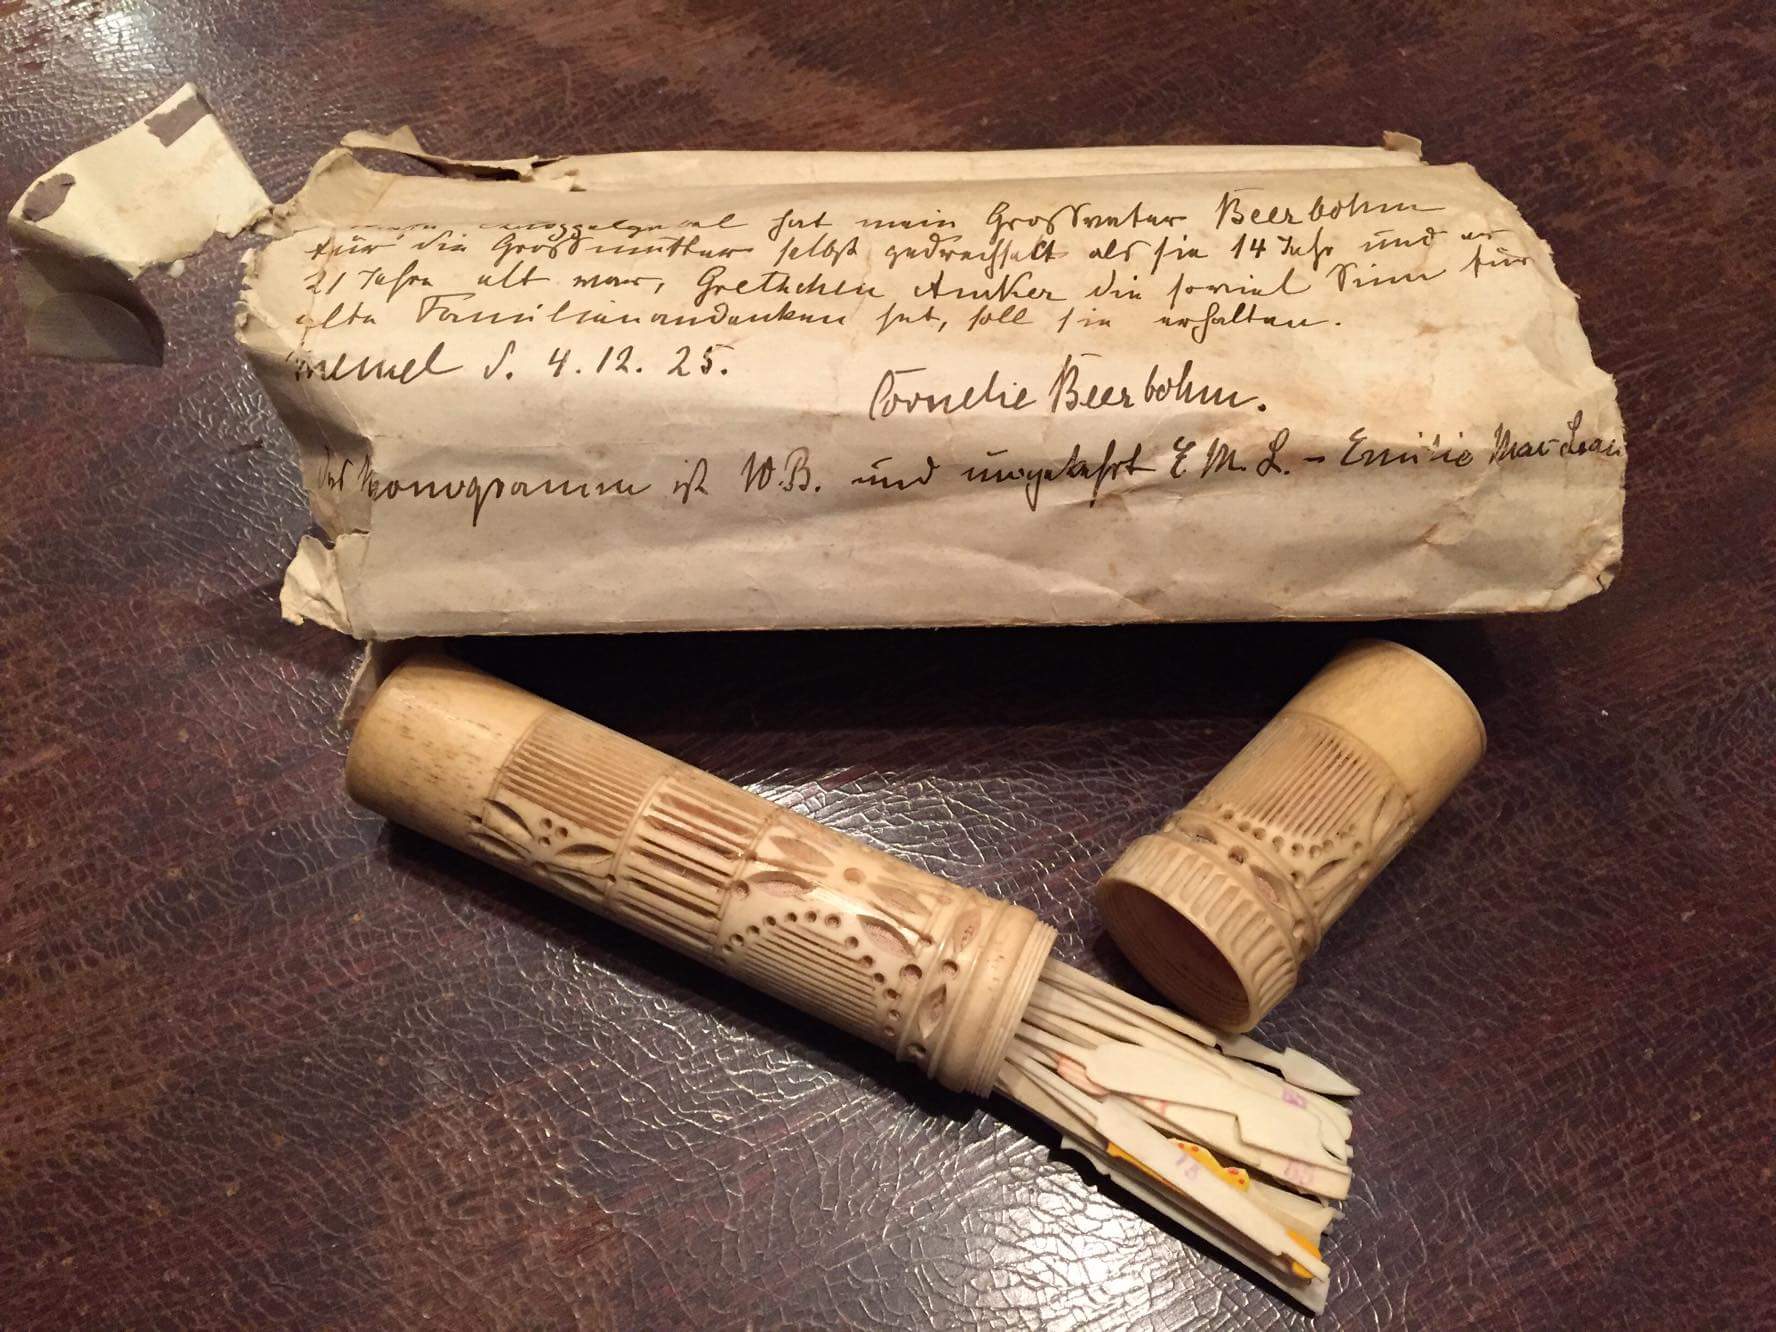 hat mein Grossvater Beerbohm
für die Grossmutter selbst gedrechselt als sie 14 Jahr und er
21 Jahre alt war, Gretchen Anker die soviel Sinn für
alte Familienandenken hat, soll sie erhalten.
Memel d. 4.12.25.
Cornelie Beerbohm.
Das Monogramm ist W.B. und umgekehrt E.M.L. - Emilie Mac-Lean